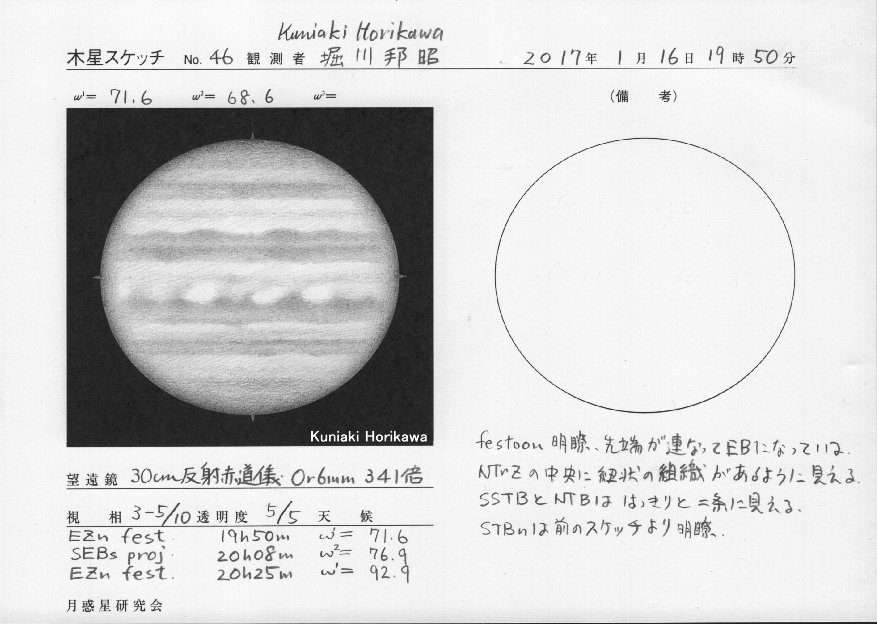 Kuniaki Horikawa
木星スケッチ No. 46 観測者 堀川邦昭 2017年 1月 16日 19時 50分
ω¹= 71.6 ω²= 68.6 ω³=
(備 考)
Kuniaki Horikawa
望遠鏡 30cm反射赤道儀 Or6mm 341倍
視 相 3-5/10 透明度 5/5 天 候
EZn fest. 19h50m ω¹= 71.6
SEBs proj. 20h08m ω²= 76.9
EZn fest. 20h25m ω¹= 92.9
月惑星研究会
festoon 明瞭、先端が連なってEBになっている.
NTrZの中央に紐状の組織があるように見える.
SSTBとNTBははっきりと二条に見える.
STBnは前のスケッチより明瞭.